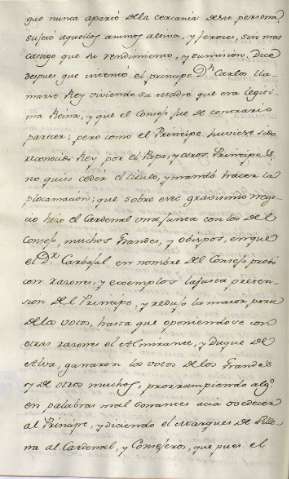 que nunca aparcó dela cercania desu persona
sugeto aquellos animos altivos, y feroces, sin mas
cargo que su rendimiento, y sumision. Dice
despues que intentó el principe Dn Carlos lla
marse Rey viviendo su madre que era legiti
ma Reina, y que el Consejo fue de contrario
parecer; pero como el Principe tuviese ya
reconocido Rey por el Papa, y otros Principes
no quiso ceder el titulo, y mandó hacer la
proclamacion; que sobre este gravisimo nego
cio hizo el Cardenal una junta con los del
Consejo, muchos Grandes, y obispos, en que
el Dr. Carbajal en nombre del Consejo probó
con razones, y exemplos la justa preten
sion del Principe, y redujo la maior parte
de los votos, hasta que oponiendose con
otras razones el Almirante, y Duque de
Alva, ganaron los votos de los Grandes
y de otros muchos, prorrumpiendo algs
en palabras mal sonantes acia
al Principe, y diciendo el Marques de Ville
na al Cardenal, y Consejeros, que pues el